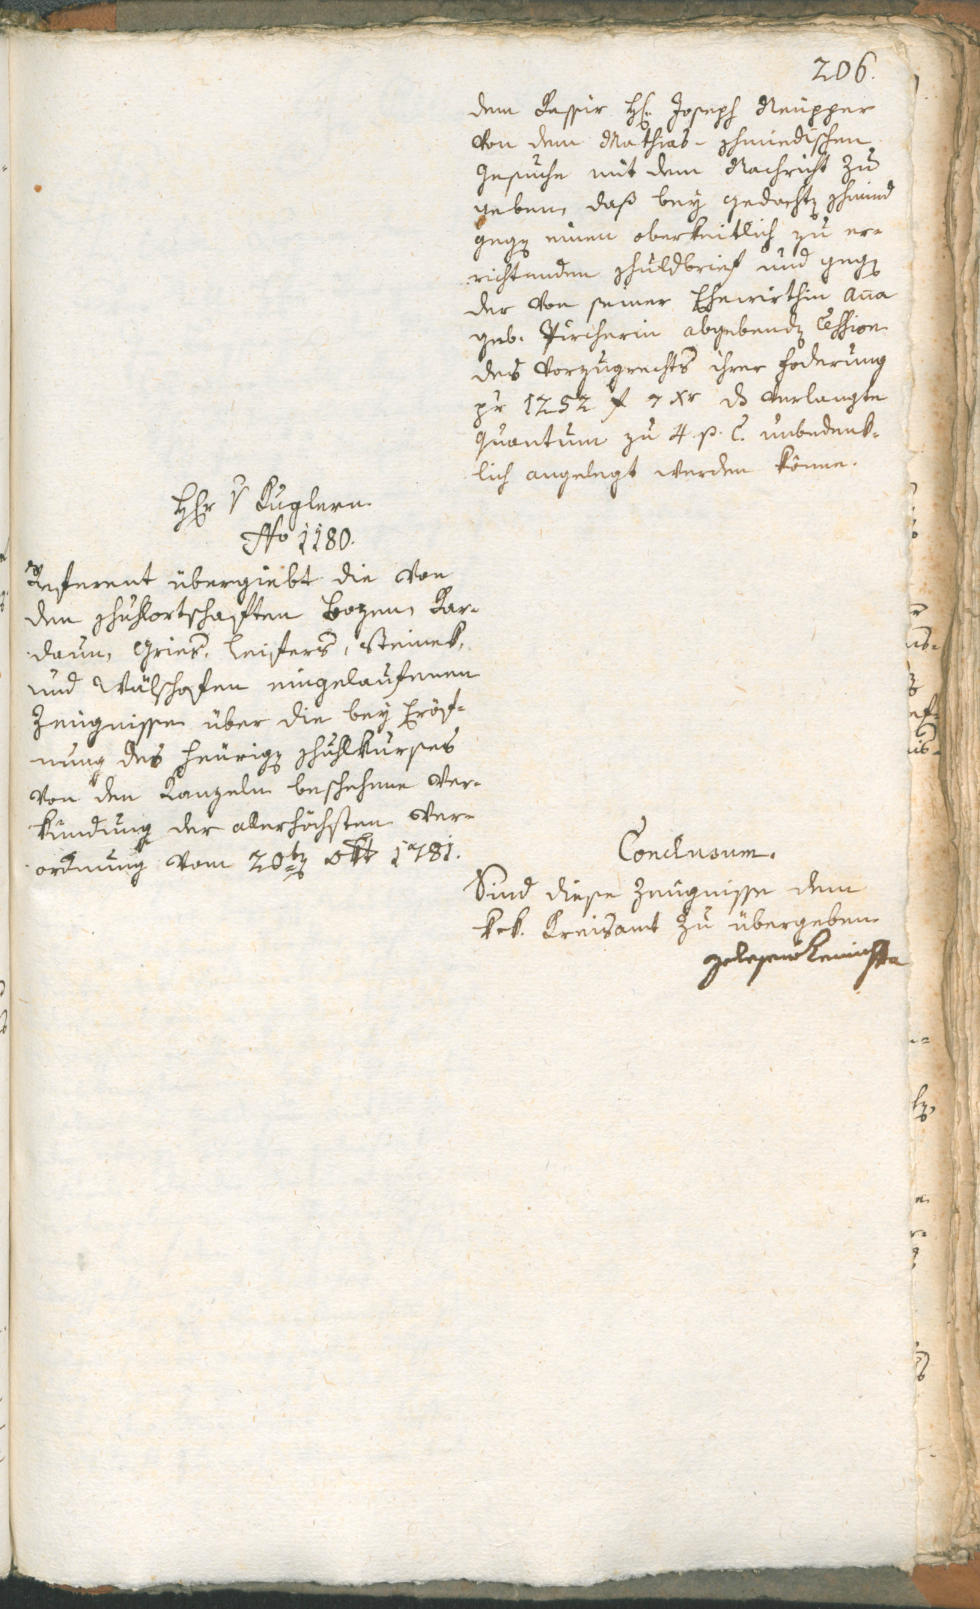 206.
dem Kassir H. Joseph Neupper
von dem Mathias-Schmiedischen
Gesuche mit dem Nachricht zu
geben, daß bey gedacht Schmied
geg einen oberkeitlich zu er-
richtenden Schuldbrief und geg
der von seiner Ehewirthin Anna
geb. Pircherin abgebend Cession
des Vorzugrechts ihrer Foderung
pr 1252 f 7 xr verlangte
Quantum zu 4 p. C. unbedenk-
lich angelegt werden könne.
H v Kuglern
No 1180.
Referent übergiebt die von
den Schulortschaften Bozen, Kar-
daun, Gries, Leifers, Steinek,
und Wälschofen eingelaufenen
Zeugnisse über die bey Eröf-
nung des heurig Schulkurses
von den Kanzeln beschehene Ver-
kündung der allerhöchsten Ver-
ordnung vom 20 Okt 1781.
Conclusum.
Sind diese Zeugnisse dem
k.k. Kreisamt zu übergeben